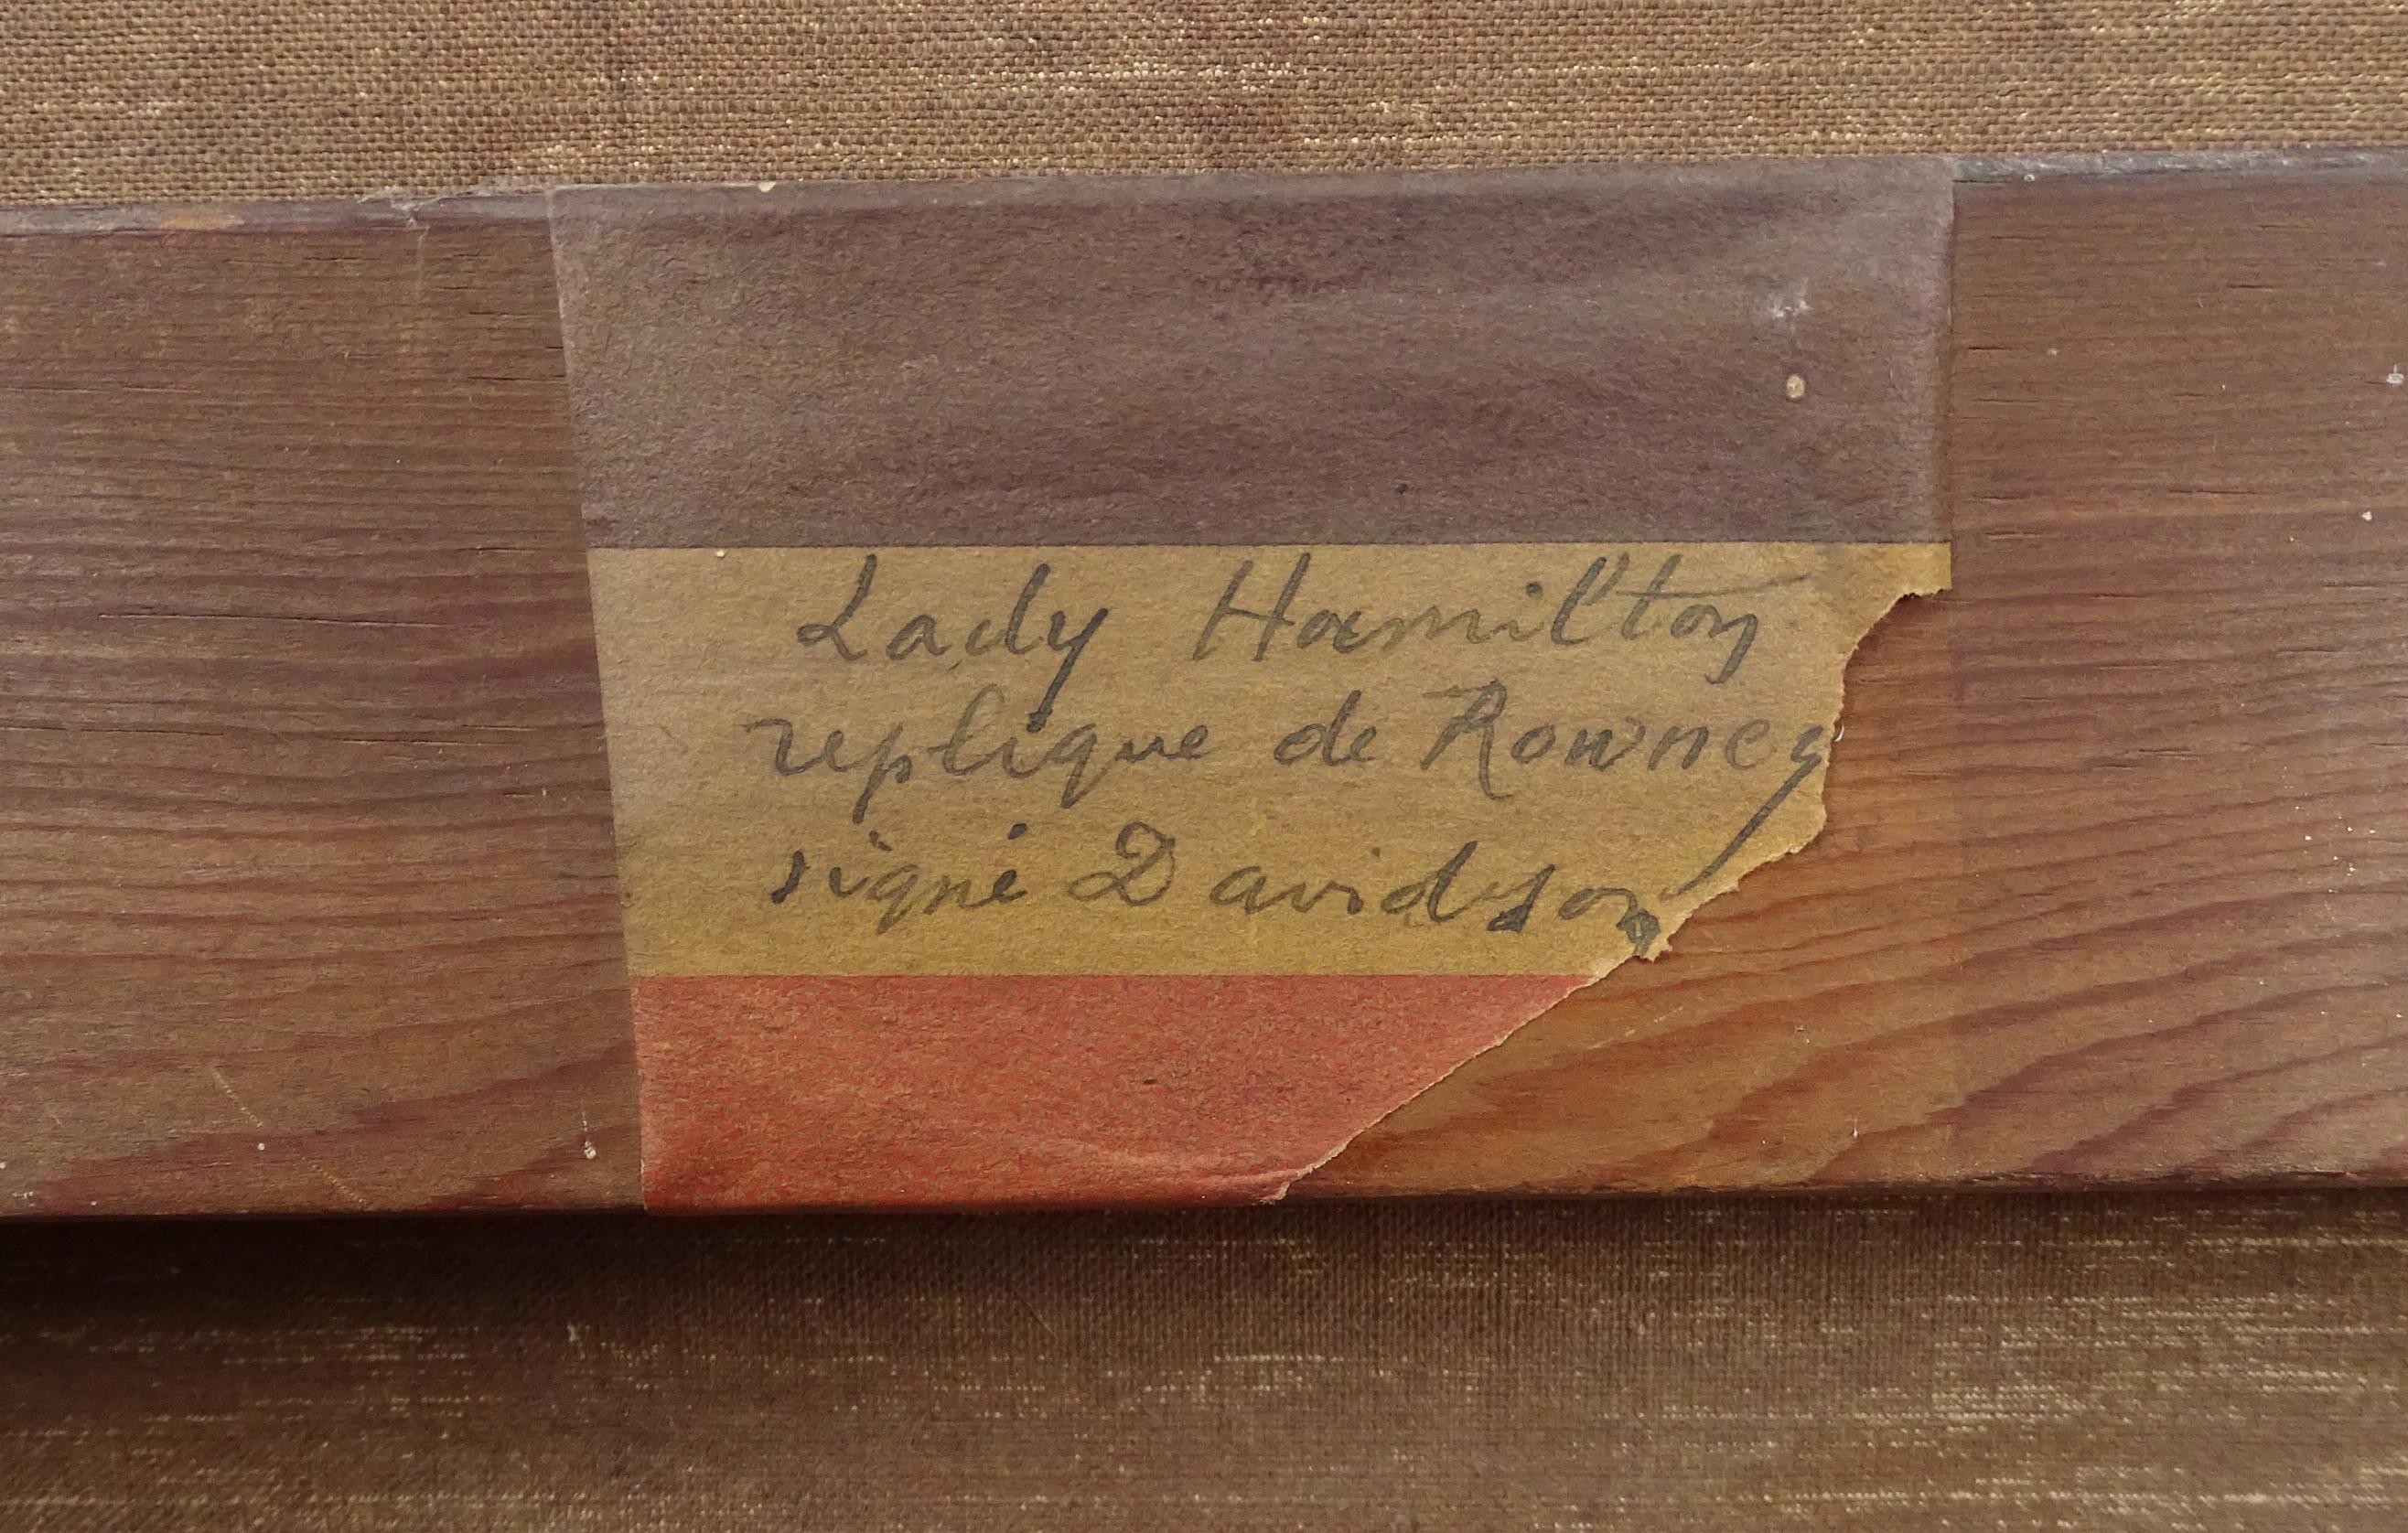 Lady Hamilton
replique de Rowney
signé Davidson